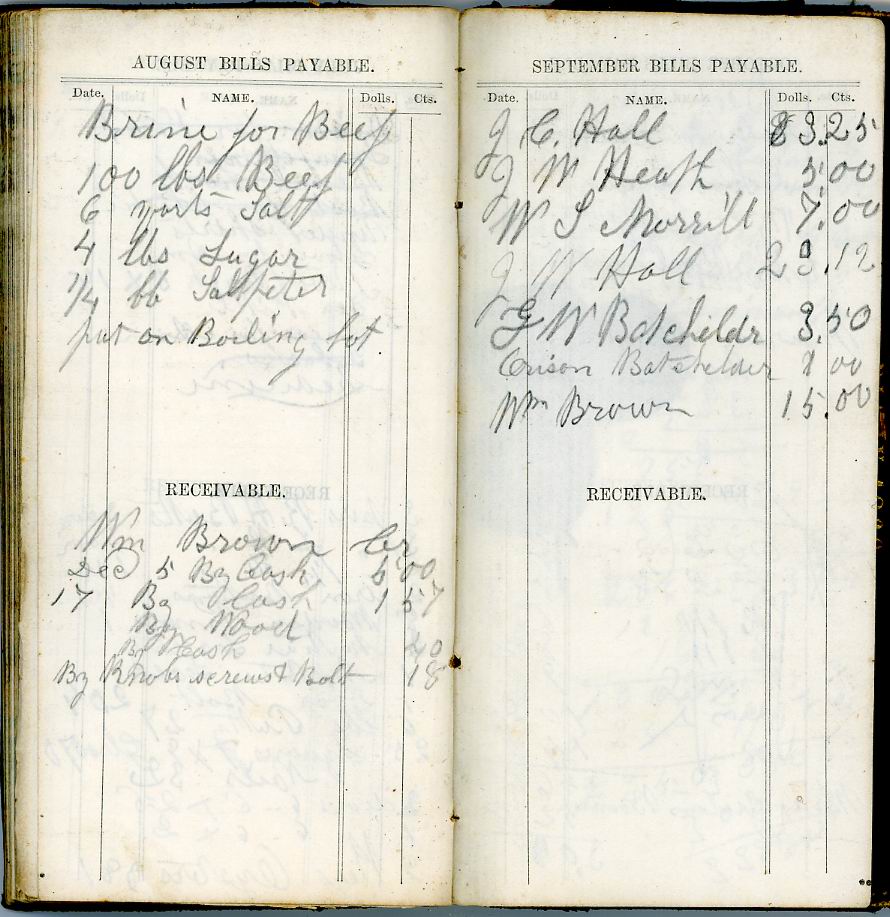 AUGUST BILLS PAYABLE.
Date. NAME. Dolls. Cts.
Brine for Beef
100 lbs Beef
6 Salt
4 lbs Sugar
1/4 lb Saltpeter
put on Boiling hot
RECEIVABLE.
Wm Brown Cr
Dec 5 By Cash 5 00
17 By Cash 1 57
By Wood
By Cash 40
By Knobs screws & Bolt 18
SEPTEMBER BILLS PAYABLE.
Date. NAME. Dolls. Cts.
J C. Hall 3.25
J M Heath 5.00
W S Morrill 7.00
J W Hall 23.12
G W Batcheldr 3.50
Orison Batchelder 00
Wm Brown 15.00
RECEIVABLE.